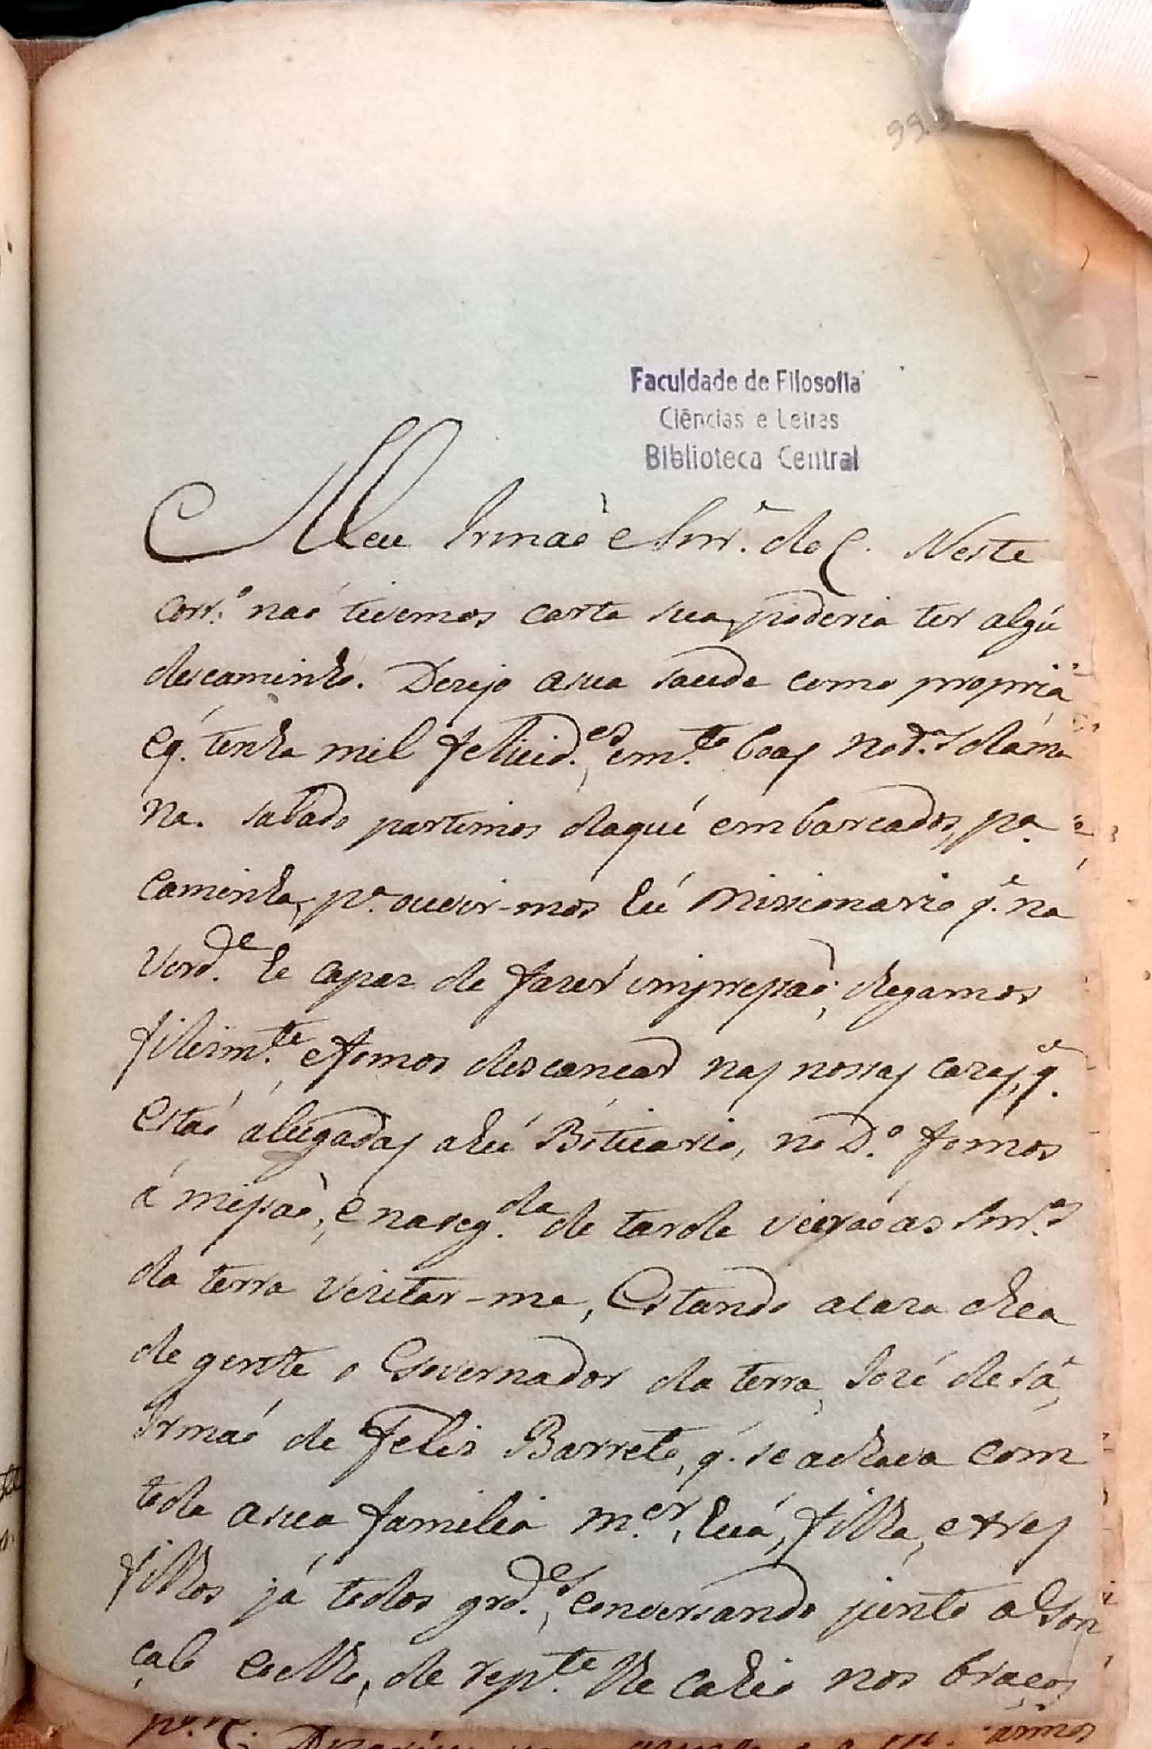 99
Faculdade de Filosofia
Ciências e Letras
Biblioteca Central
Meu Irmaõ e Snr.ͤ do C. Neste
corr.º naó tivemos carta sua, poderia ter algũ
descaminho. Dezejo asua saude como propriã
eq. tenha mil felicid.es, em.to boas
na. sabado partimos daqui embarcados, pª
Caminha, pª ouvir-mos hú Missionario q.ͤ na
Verd.ͤ he capaz de fazer impressaõ; chegamos
felism.te e fomos descancar nas nossas cazas, q.ͤ
estaó álugadas ahú Boticario, no D.º fomos
á missaõ, e naseg.da de tarde vieraó as Snr.as
da terra vizitar-me, Estando acaza chea
de gente o Governador da terra, Jozé de Sá,
Irmaó de Felis Barreto, q. se achava com
toda asua familia m.er, huá, filha, e tres
filhos já todos grd.es, conversando junto a Gon
calo Coelho, de rep.te lhe cahio nos braços